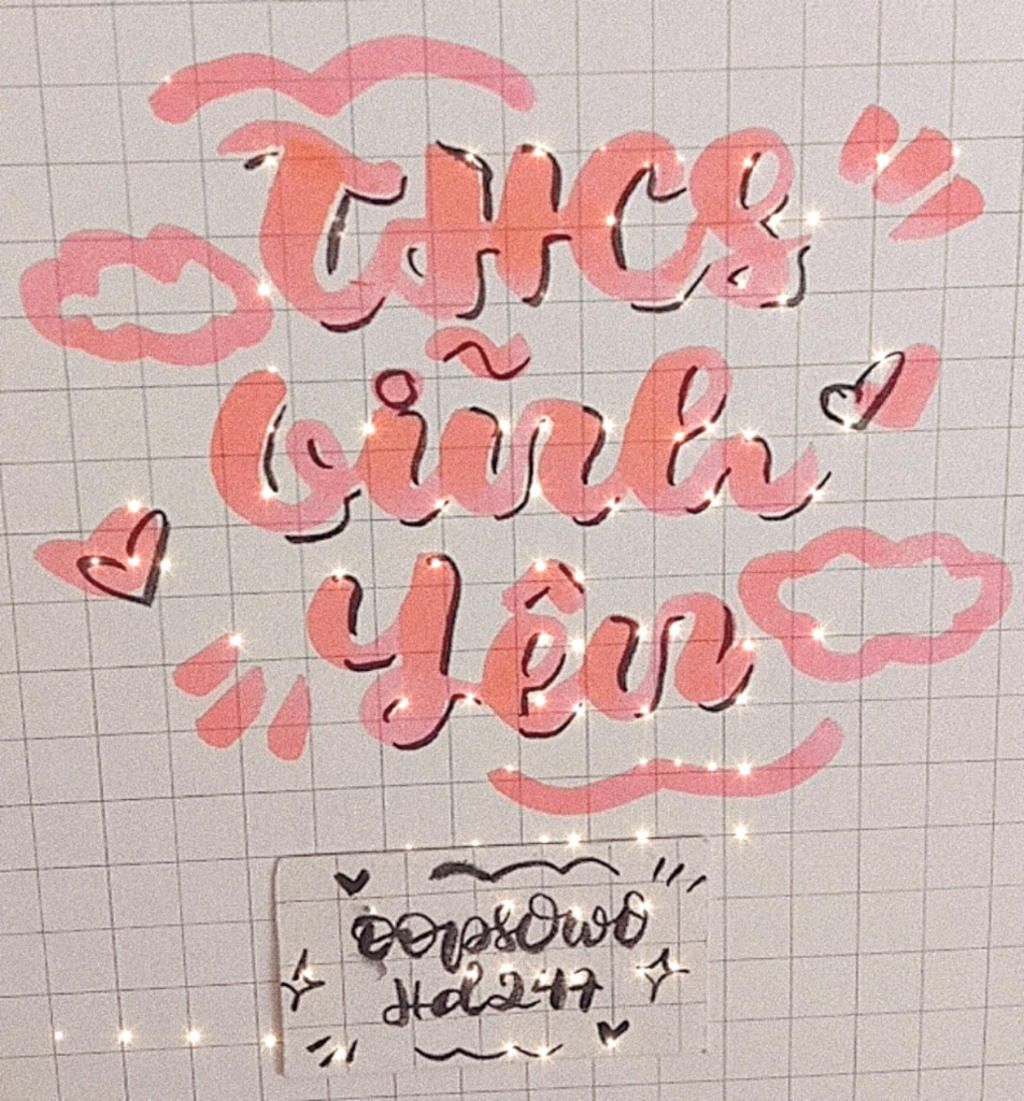 THCS
Vĩnh
Yên
oopsOwO
Hd247